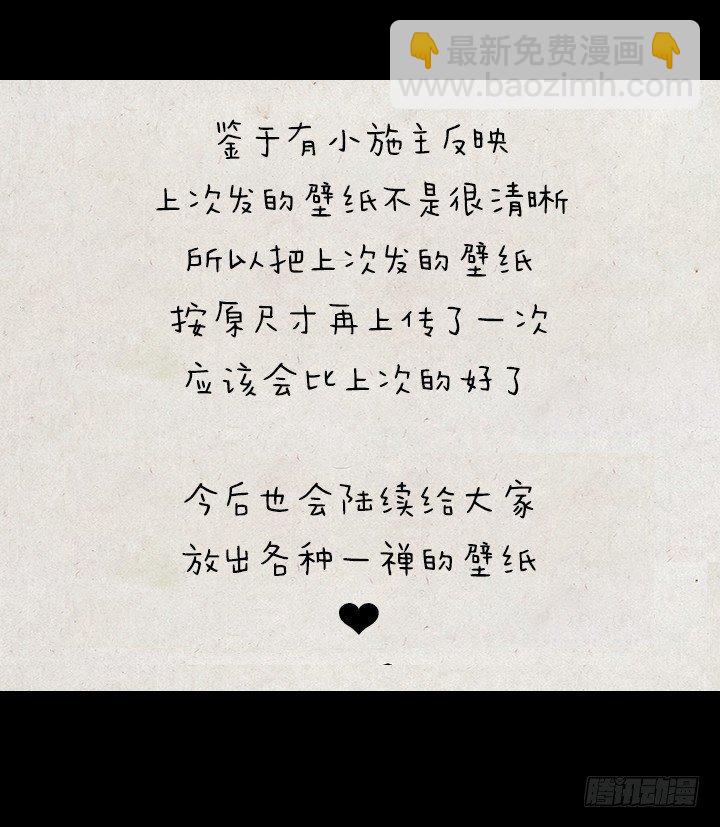 👇最新免费漫画👇
www.baozimh.com
鉴于有小施主反映
上次发的壁纸不是很清晰
所以把上次发的壁纸
按原尺寸再上传了一次
应该会比上次的好了
今后也会陆续给大家
放出各种一禅的壁纸
❤
腾讯动漫